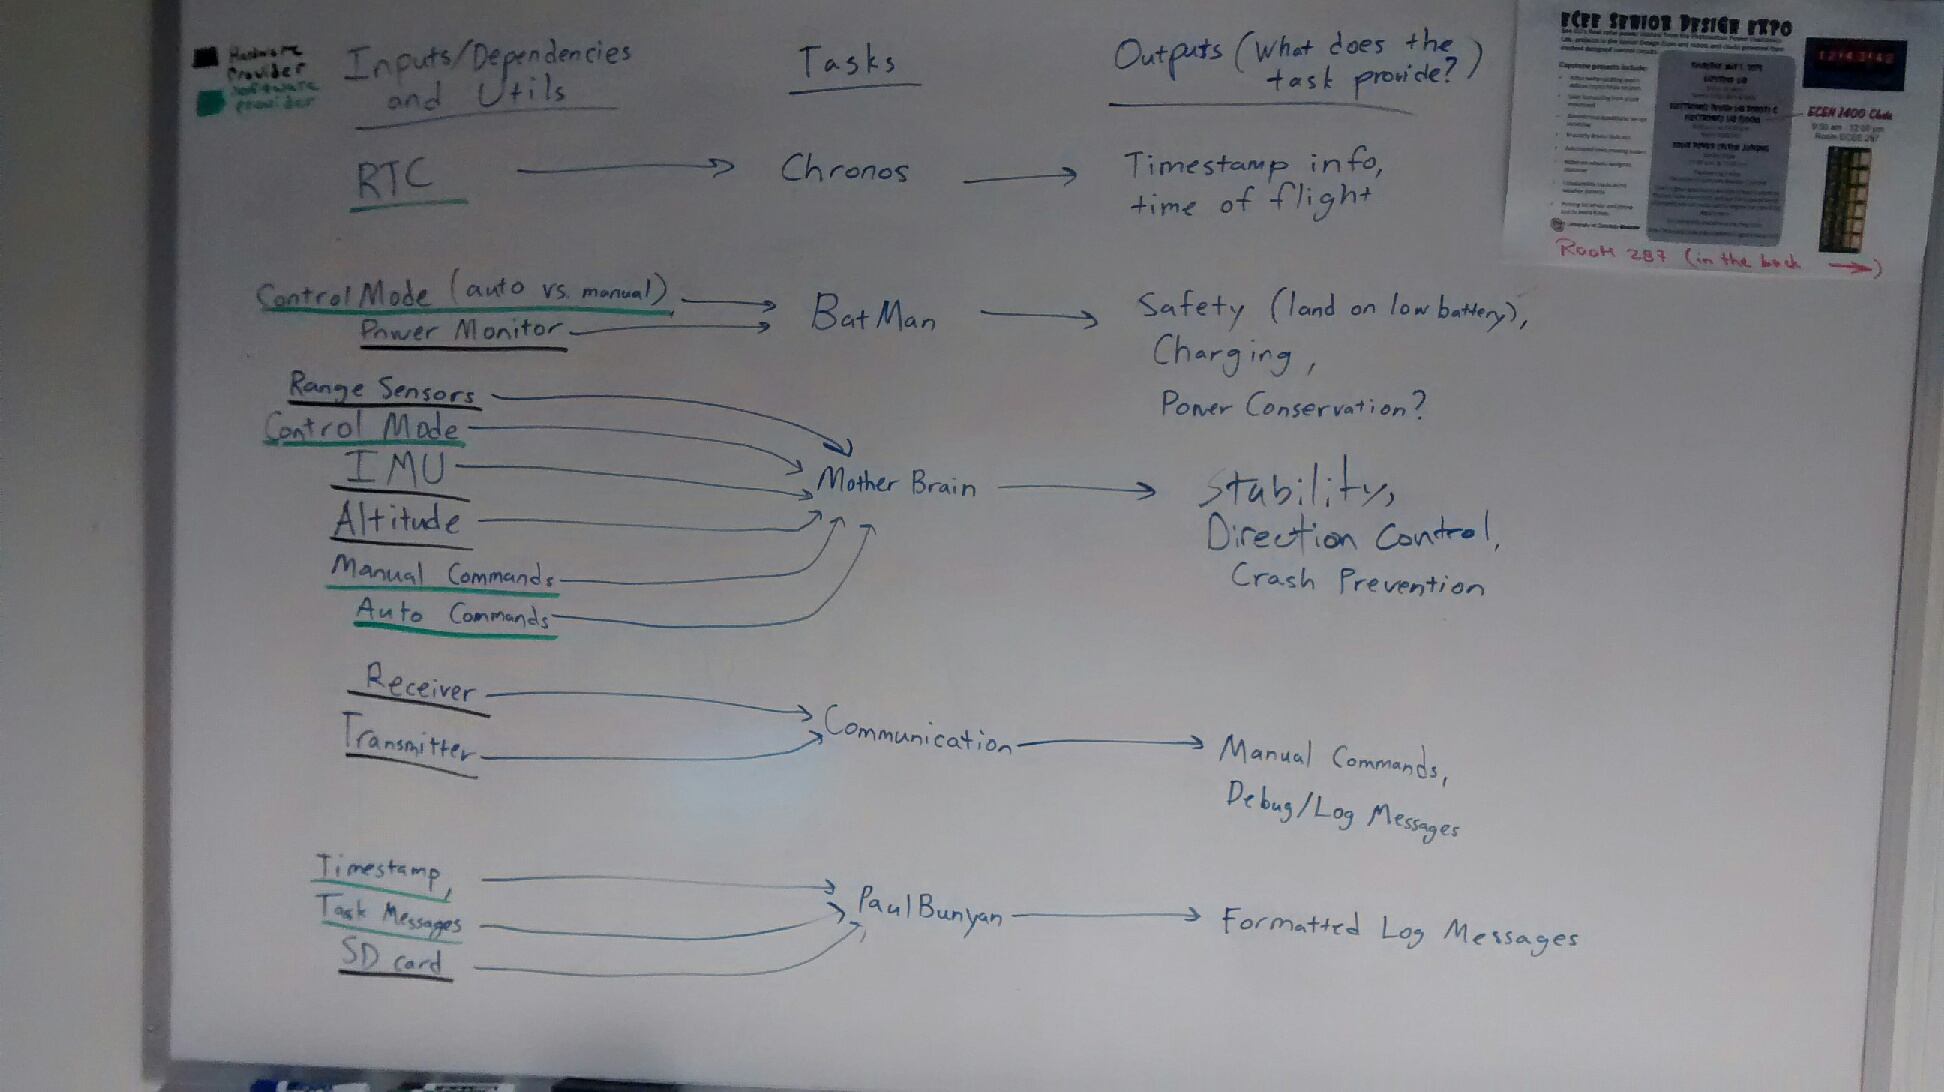 Hardware Provider
Software provider
Inputs/Dependencies
and Utils
Tasks
Outputs (What does the
task provide?)
RTC
Chronos
Timestamp info,
time of flight
Control Mode (auto vs. manual)
Power Monitor
BatMan
Safety (land on low battery),
Charging,
Power Conservation?
Range Sensors
Control Mode
IMU
Altitude
Manual Commands
Auto Commands
Mother Brain
Stability,
Direction Control,
Crash Prevention
Receiver
Transmitter
Communication
Manual Commands,
Debug/Log Messages
Timestamp,
Task Messages
SD card
Paul Bunyan
Formatted Log Messages
ECEE SENIOR DESIGN EXPO
ECEN 2400 Clocks
Room 287 (in the back →)